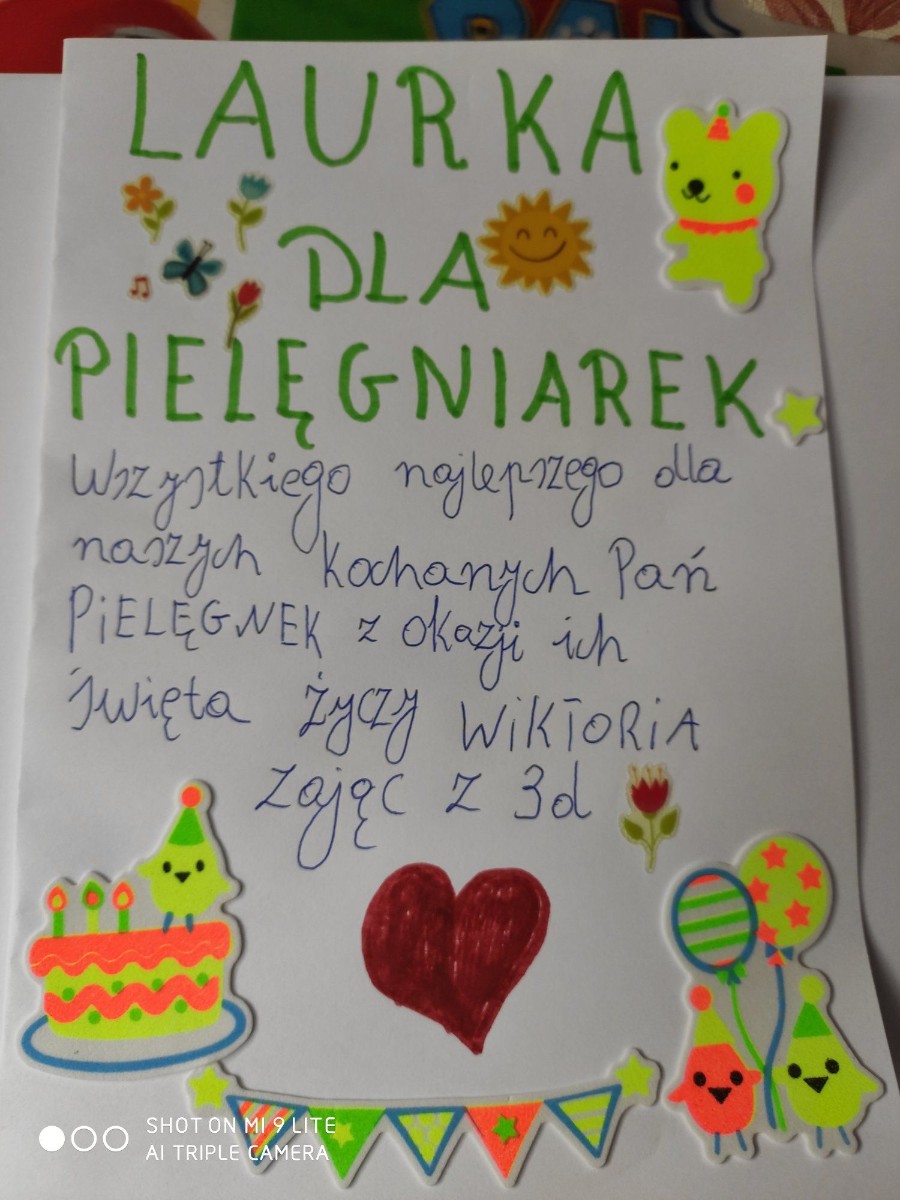 LAURKA
DLA
PIELĘGNIAREK
Wszystkiego najlepszego dla
naszych kochanych Pań
PiELĘGNEK z okazji ich
święta życzy WiKTORiA
Zając z 3d
SHOT ON MI 9 LITE
AI TRIPLE CAMERA